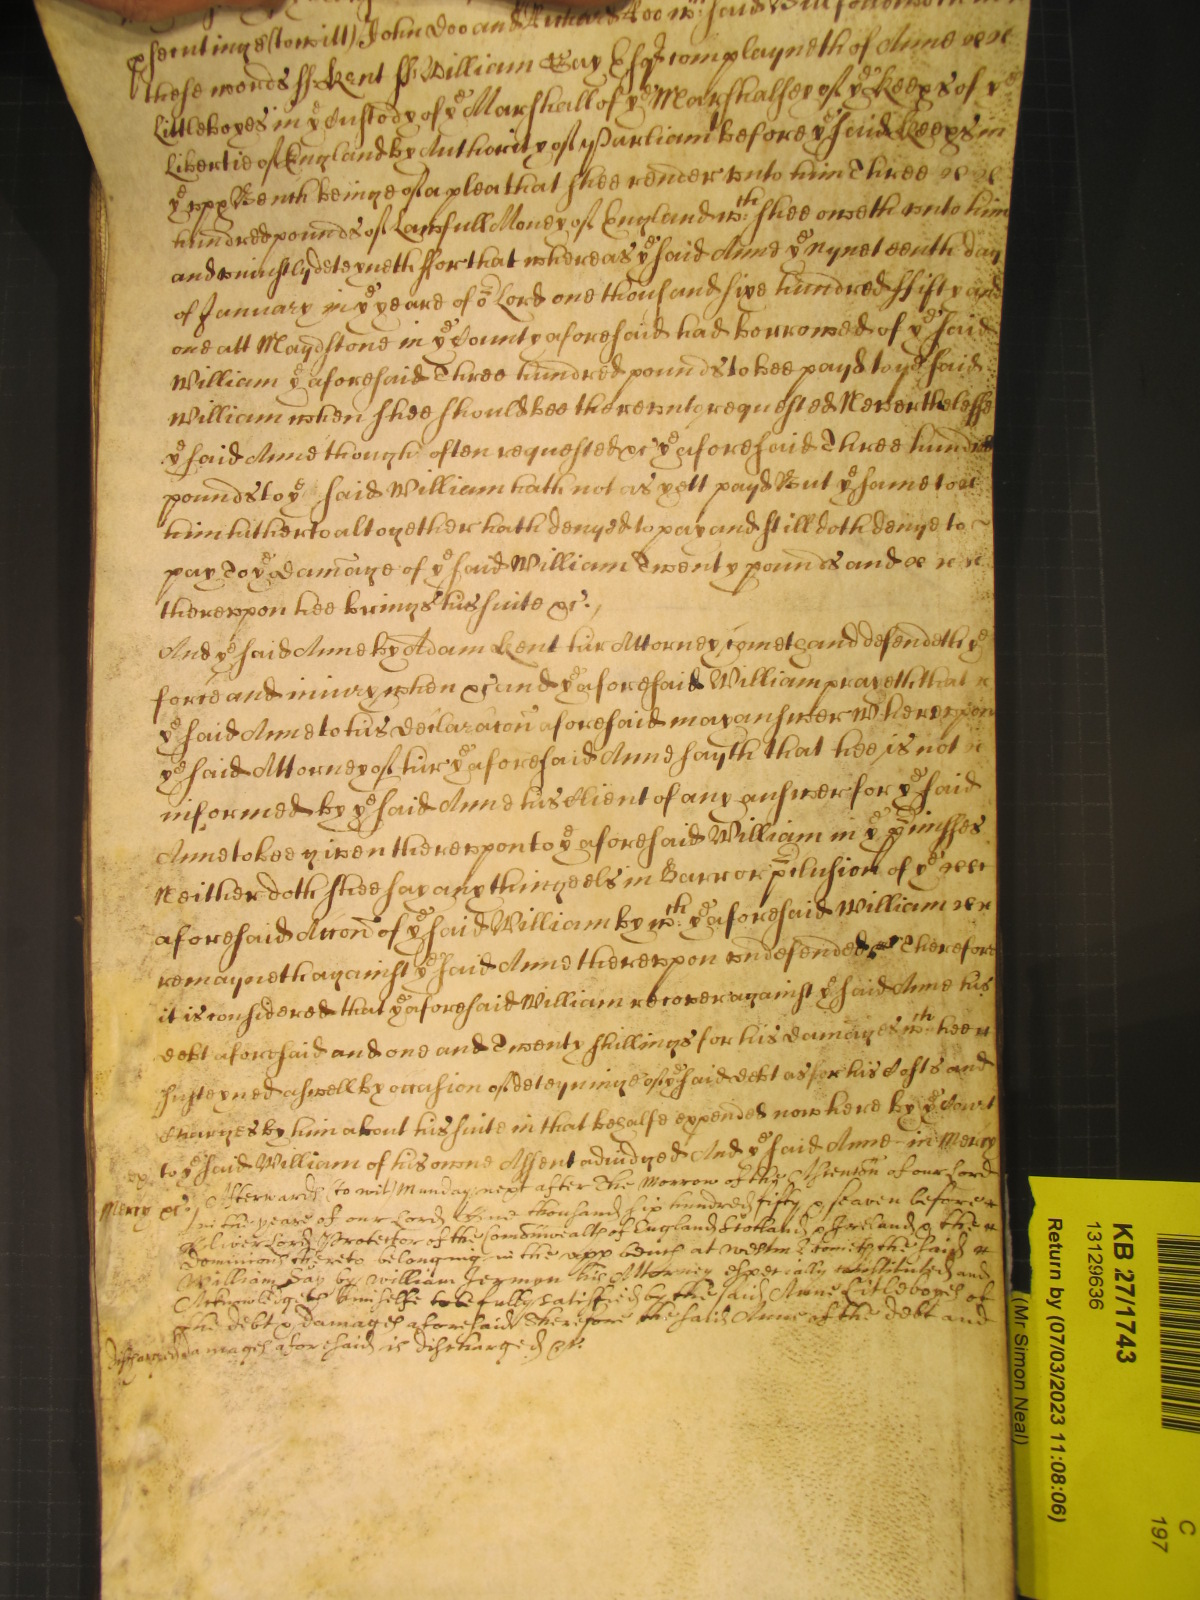 psecutinge (to witt) John Doo and Richard Roo wch said Bill followeth in
these words ss Kent ss William Gay Esqr complayneth of Anne
Littleboyes in ye Custody of ye Marshall of ye Marshalsey of ye Keeps of ye
Libertie of England by Authority of Parliamt before ye said Keeps in
ye upp Bench beinge of a plea that shee render unto him Three
hundred pounds of Lawfull Money of England wch shee oweth unto him
and uniustly deteyneth ffor that whereas ye said Anne ye nyneteenth day
of January in ye yeare of or Lord one thousand sixe hundred ffifty and
one att Maydstone in ye County aforesaid had borrowed of ye said
William ye aforesaid Three hundred pounds to bee payd to ye said
William when shee should bee thereunto requested Neverthelesse
ye said Anne though often requested &c ye aforesaid Three hundred
pounds to ye said William hath not as yett payd But ye same to
him hitherto altogether hath denyed to pay and still doth denye to
pay To ye damage of ye said William Twenty pounds and
thereupon hee brings his suite &c.
And ye said Anne by Adam Kent hir Attorney cometh and defendeth ye
force and iniury when &c and ye aforesaid William prayeth that
ye said Anne to his declaracon aforesaid may answer Whereupon
ye said Attorney of hir ye aforesaid Anne sayth that hee is not
informed by ye said Anne his Client of any answer for ye said
Anne to bee given thereupon to ye aforesaid William in ye pmisses
Neither doth shee say any thinge els in Barr or pclusion of ye
aforesaid Accon of ye said William by wch ye aforesaid William
remayneth against ye said Anne thereupon undefended Therefore
it is considered that ye aforesaid William recover against ye said Anne his
debt aforesaid and one and Twenty shillings for his damages wch hee
susteyned aswell by occasion of deteyninge of ye said debt as for his Costs and
Charges by him about his suite in that behalfe expended now here by ye Court
to ye said William of his owne Assent adiudged And ye said Anne in Mercy
Mercy &c. Afterwards (to wit) Munday next after the Morrow of the Ascention of our Lord
in the yeare of our Lord One thousand six hundred fifty & seaven before
Oliver Lord Protector of the Comonwealth of England Scotland & Ireland & the
Dominions thereto belonging in the upp bench at Westm Cometh the said
William Gay by William Jermyn his Attorney especially constituted and
Acknowledgeth himselfe to be fully satisfied by the said Anne Litleboyes of
the debt & damages aforesaid Therefore the said Anne of the debt and
discharged damages aforesaid is discharged &c.
KB 27/1743
13129636
Return by (07/03/2023 11:08:06)
(Mr Simon Neal)
C
197